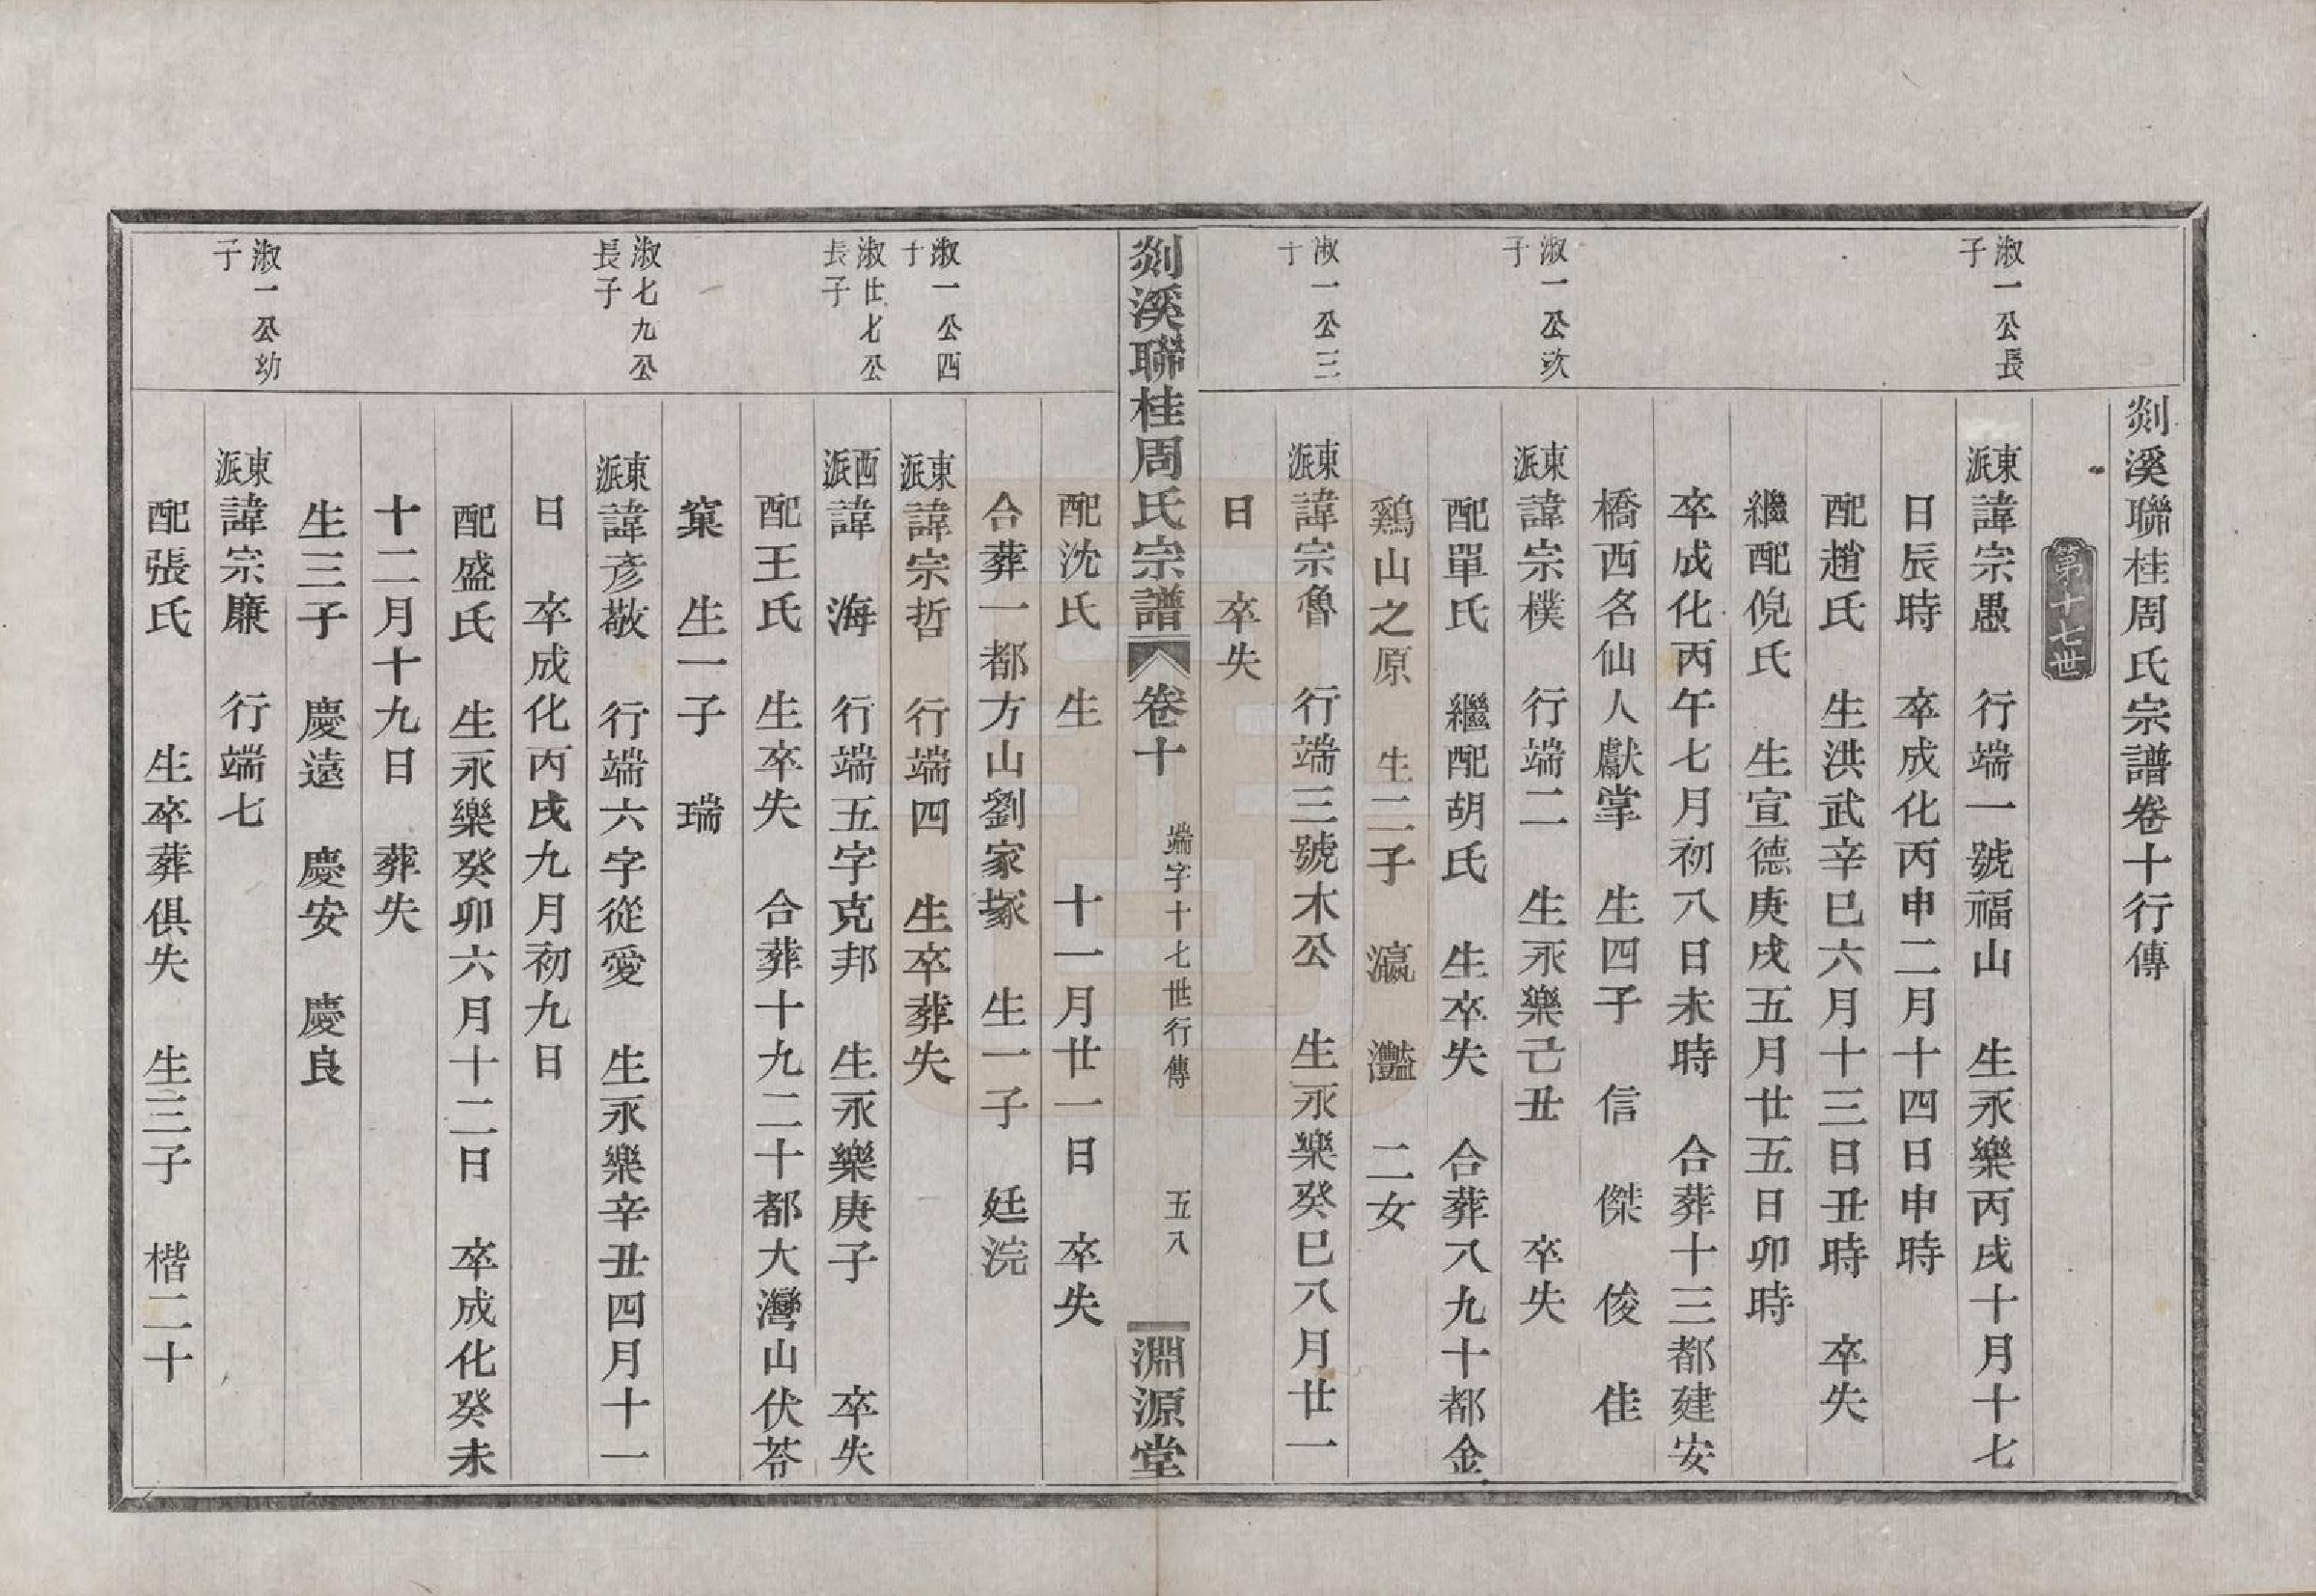 剡溪聯桂周氏宗譜卷十行傳
第十七世
淑一公長子
東派諱宗愚　行端一號福山　生永樂丙戌十月十七
日辰時　卒成化丙申二月十四日申時
配趙氏　生洪武辛巳六月十三日丑時　卒失
繼配倪氏　生宣德庚戌五月廿五日卯時
卒成化丙午七月初八日未時　合葬十三都建安
橋西名仙人獻掌　生四子　信　傑　俊　佳
淑一公次子
東派諱宗樸　行端二　生永樂己丑　卒失
配單氏　繼配胡氏　生卒失　合葬八九十都金
鷄山之原　生二子　瀛　灩　二女
淑一公三子
東派諱宗魯　行端三號木公　生永樂癸巳八月廿一
日　卒失
剡溪聯桂周氏宗譜　卷十　端字十七世行傳　五八　淵源堂
配沈氏　生　十一月廿一日　卒失
合葬一都方山劉家塚　生一子　廷浣
淑一公四子
東派諱宗哲　行端四　生卒葬失
淑廿七公長子
西派諱　海　行端五字克邦　生永樂庚子　卒失
配王氏　生卒失　合葬十九二十都大灣山伏苓
窠　生一子　瑞
淑七九公長子
東派諱彥敬　行端六字從愛　生永樂辛丑四月十一
日　卒成化丙戌九月初九日
配盛氏　生永樂癸卯六月十二日　卒成化癸未
十二月十九日　葬失
生三子　慶遠　慶安　慶良
淑一公幼子
東派諱宗廉　行端七
配張氏　生卒葬俱失　生三子　楷二十